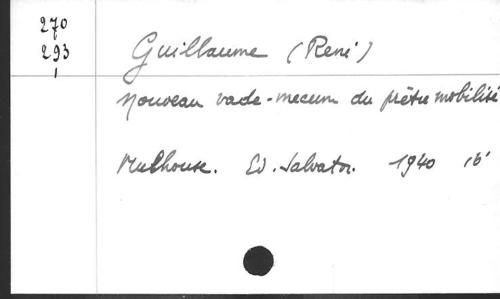 270
293
Guillaume (René)
Nouveau vade-mecum du prêtre mobilisé
Mulhouse. Ed. Salvator. 1940 16°